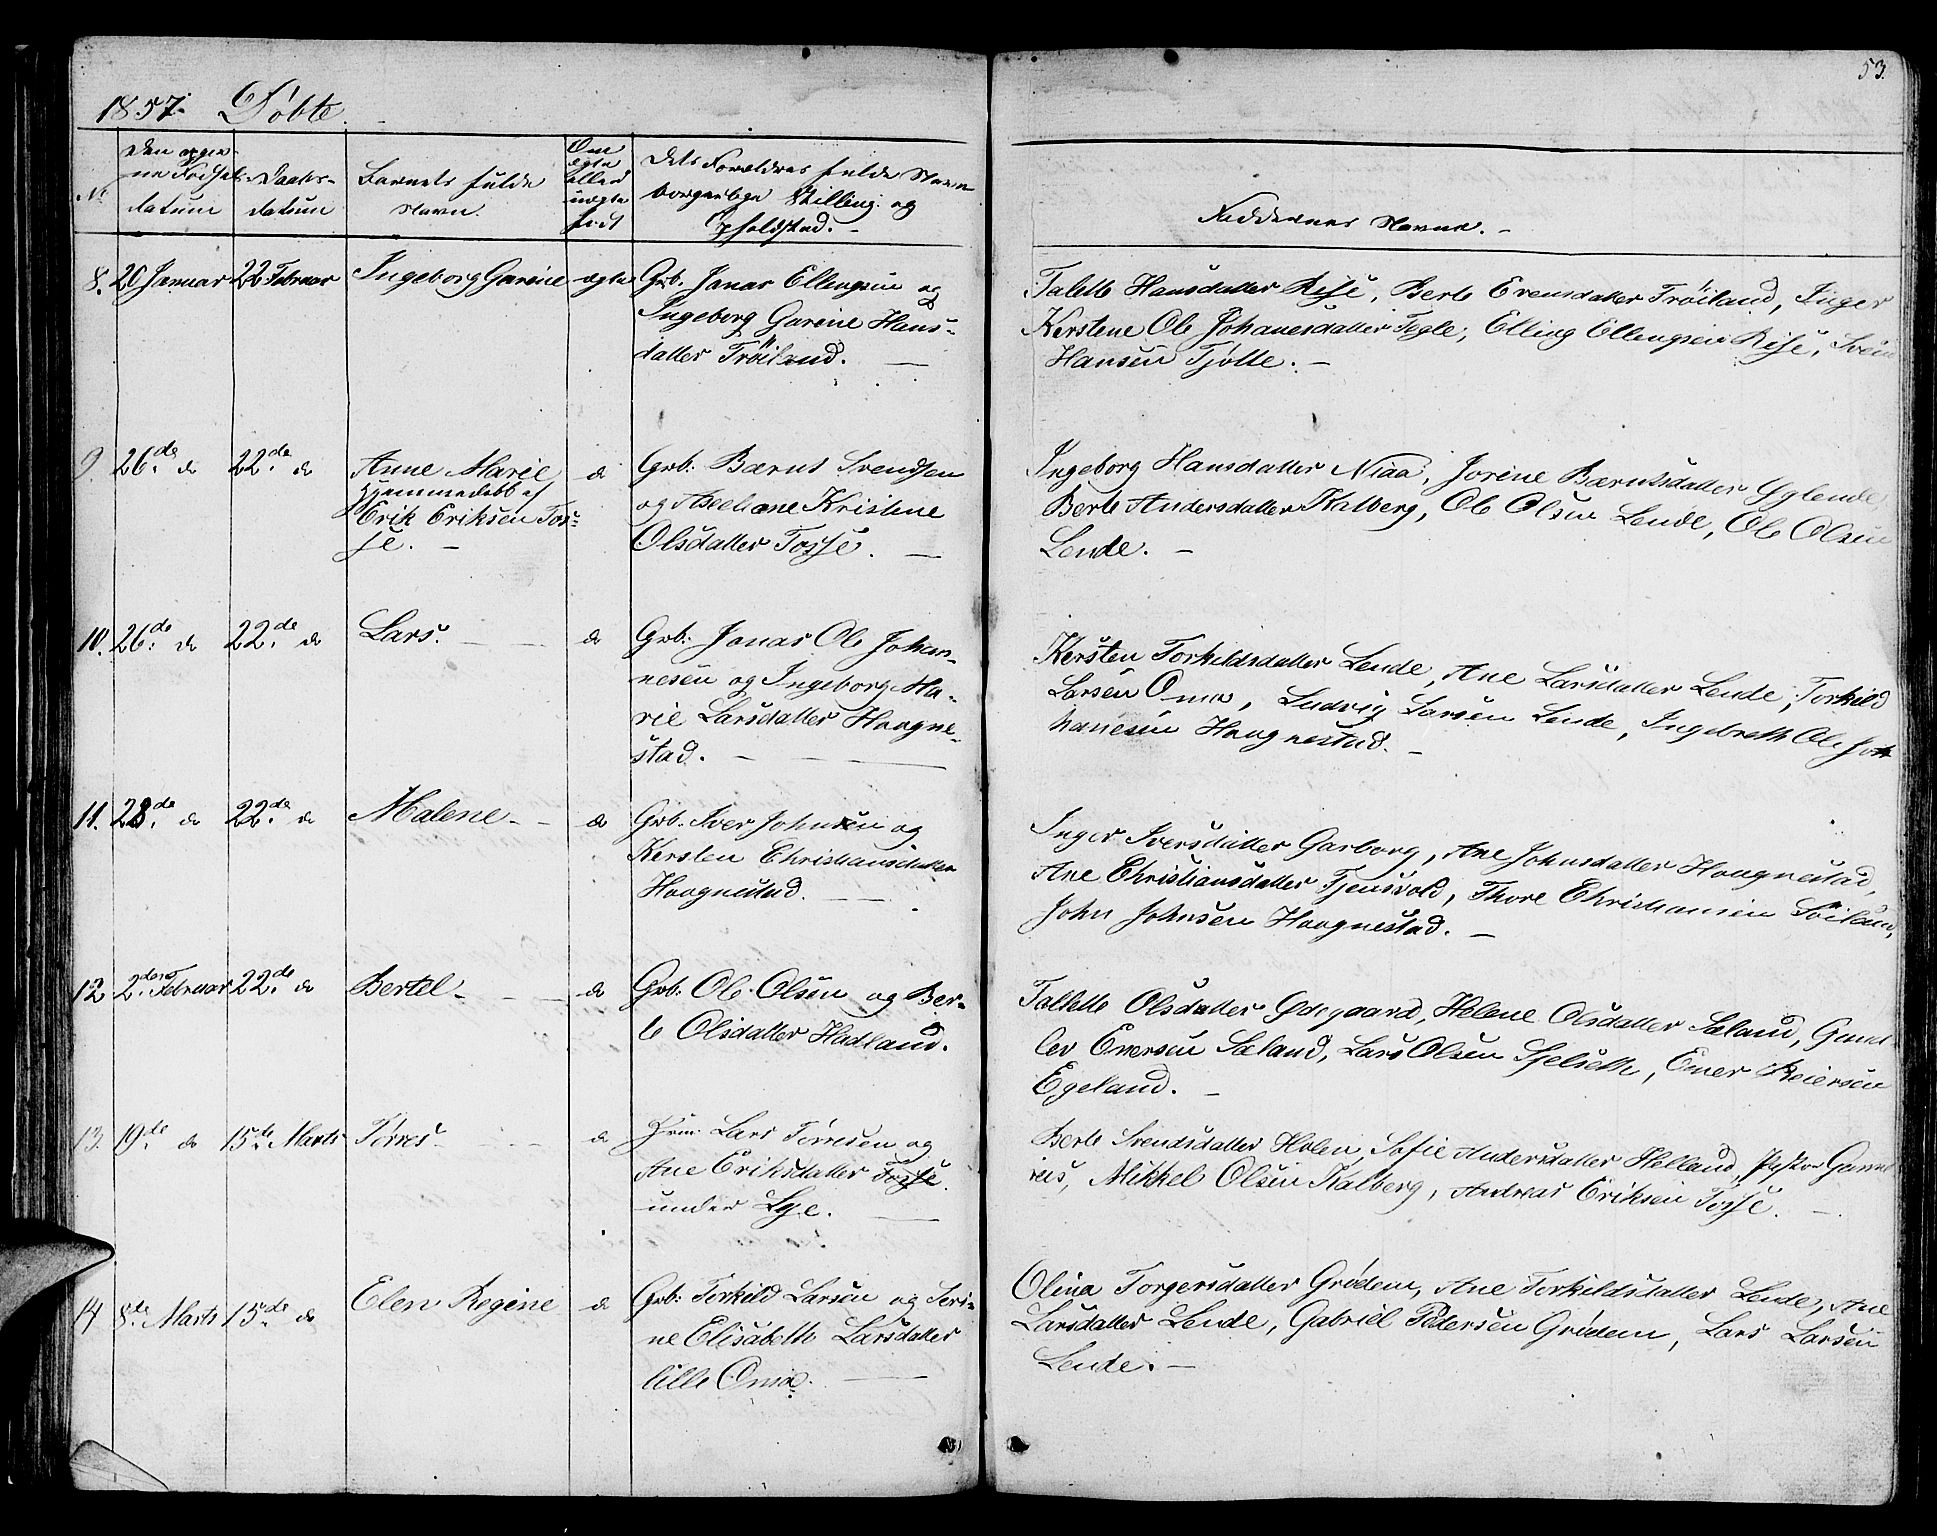 53.
1857. Døbte.
No
Den opgiv-
ne Fødsels-
datum
Daabs-
datum
Barnets fulde
Navn.
Om
egte
eller
uægte
født
Dets Forældres fulde Navn
borgerlige Stilling og
Opholdsted. -
Faddernes Navne. -
8. 20 Januar 22 Februar Ingeborg Gurine ægte Grb. Jonas Ellengsen og
Ingeborg Gurine Hans-
datter Trøiland. -
Talette Hansdatter Rise, Berte Evensdatter Trøiland, Inger
Kerstene Ole Johanesdatter Tegle, Elling Ellengsen Rise, Svend
Hansen Tjøtte. -
9. 26de do 22de do Anne Marie do Grb: Bærnt Svendsen
Hjemmedøbt af
Erik Eriksen Tos-
se. -
og Aseliane Kristine
Olsdatter Tosse. -
Ingeborg Hansdatter Niaa, Jorine Bærntsdatter Yglende,
Berte Andersdatter Kalberg, Ole Olsen Lende, Ole Olsen
Lende. -
10. 26de do 22de do Lars. do Grb: Jonas Ole Johan-
nesen og Ingeborg Ma-
rie Larsdatter Haagne-
stad. -
Kersten Torkildsdatter Lende, Ane Larsdatter Lende, Torkild
Larsen Oma, Ludvig Larsen Lende, Ingebreth Ole Joh
hanesen Haagnestad. -
11. 28de do 22de do Malene - do Grb: Iver Johnsen og
Kersten Christiansdatter
Haagnestad. -
Inger Iversdatter Garborg, Ane Johnsdatter Haagnestad,
Ane Christiansdatter Tjensvold, Thore Christiansen Söiland,
John Johnsen Haagnestad. -
12. 2den Februar 22de do Bertel - do Grb: Ole Olsen og Ber-
te Olsdatter Hadland.
Tallette Olsdatter Ødegaard, Helene Olsdatter Sæland, Gund
lev Emersen Sæland, Lars Olsen Sjelseth, Emer Reiersen
Egeland. -
13. 19de do 15de Marts Tørres - do Lars Tørresen og
Ane Eriksdatter Tosse
under Lye. -
Berte Svendsdatter Holen, Sofie Andersdatter Helland, Pastor Gunne
rius, Mikkel Olsen Kalberg, Andreas Eriksen Tosse. -
14 8de Marts 15de do Elen Regine do Grb: Torkild Larsen og Seri-
ne Elisabeth Larsdatter
lille Oma. -
Olina Torgersdatter Grødem, Ane Torkildsdatter Lende, Ane
Larsdatter Lende, Gabriel Pedersen Grødem, Lars Larsen
Lende. -